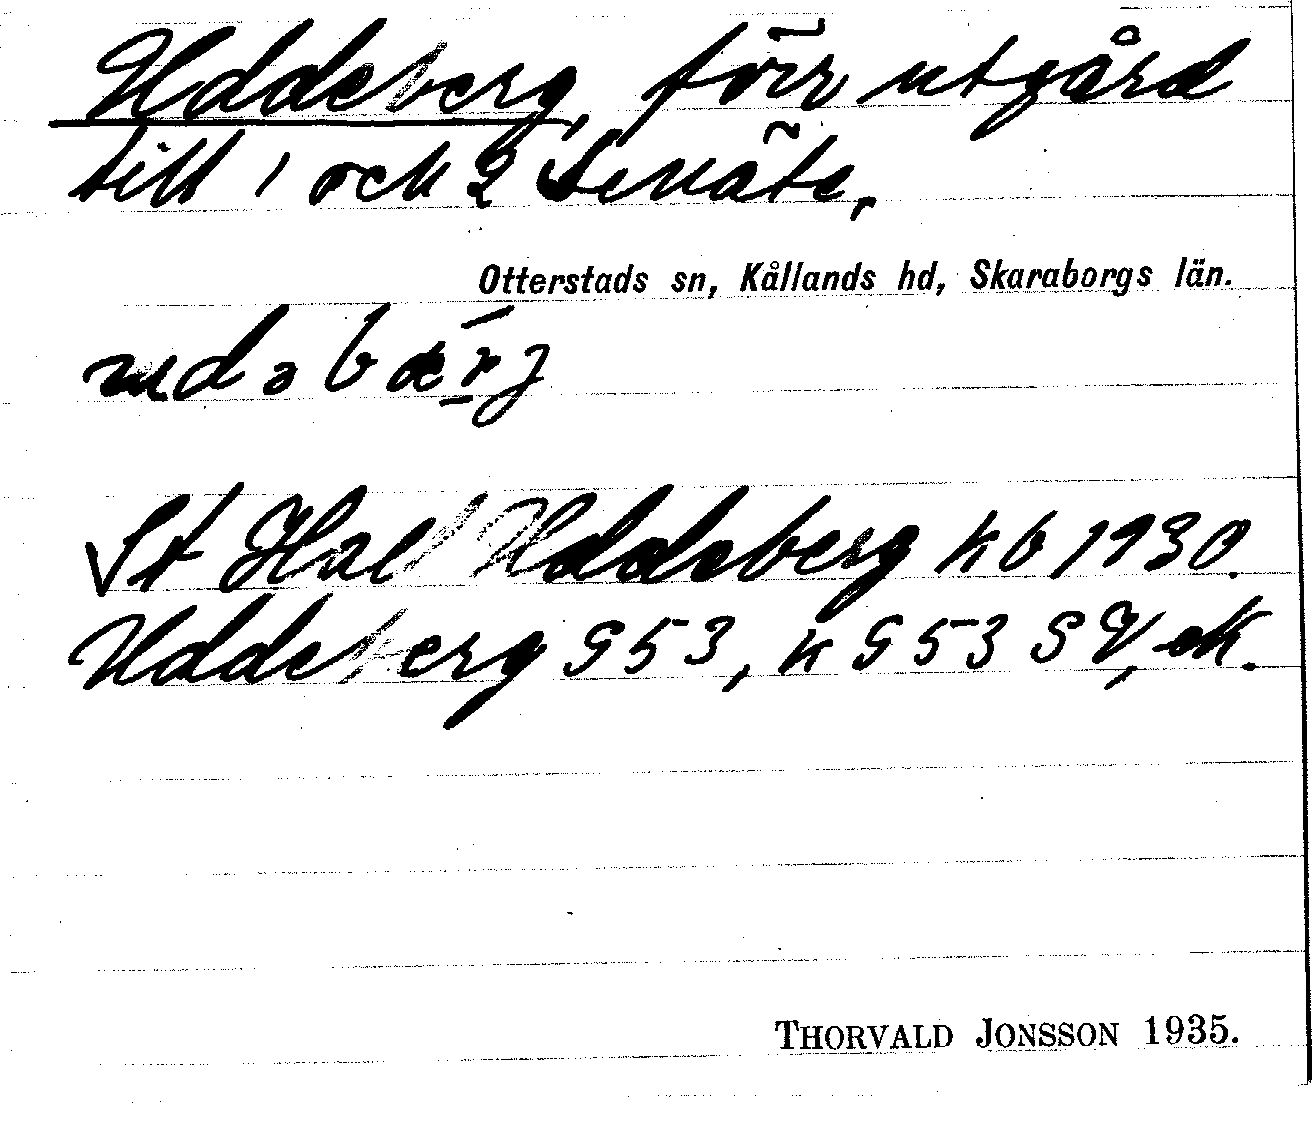 Uddeberg, förr utgård
till 1 och 2 Senäte,
Otterstads sn, Kållands hd, Skaraborgs län.
udəbærj
St Hal Uddeberg kb 1930.
Uddeberg G53, k G53 SV, ek.
THORVALD JONSSON 1935.